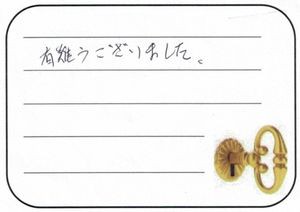 有難うございました。